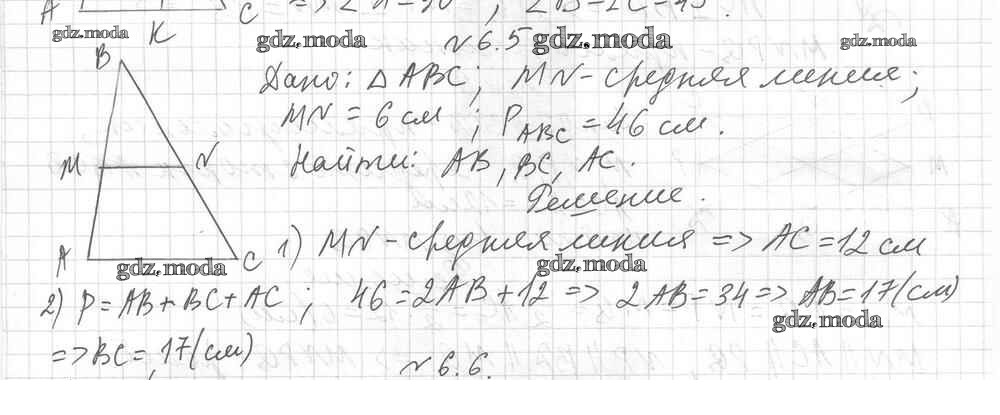 A K C => ∠A=90° ; ∠B=∠C=45°.
gdz.moda gdz.moda gdz.moda gdz.moda
N 6.5
B
Дано: △ABC; MN - средняя линия;
MN = 6 см ; P_ABC = 46 см.
M N
Найти: AB, BC, AC.
Решение.
1) MN - средняя линия => AC = 12 см
A C
gdz.moda gdz.moda
2) P = AB + BC + AC ; 46 = 2AB + 12 => 2AB = 34 => AB = 17(см)
gdz.moda
=> BC = 17(см)
N 6.6.